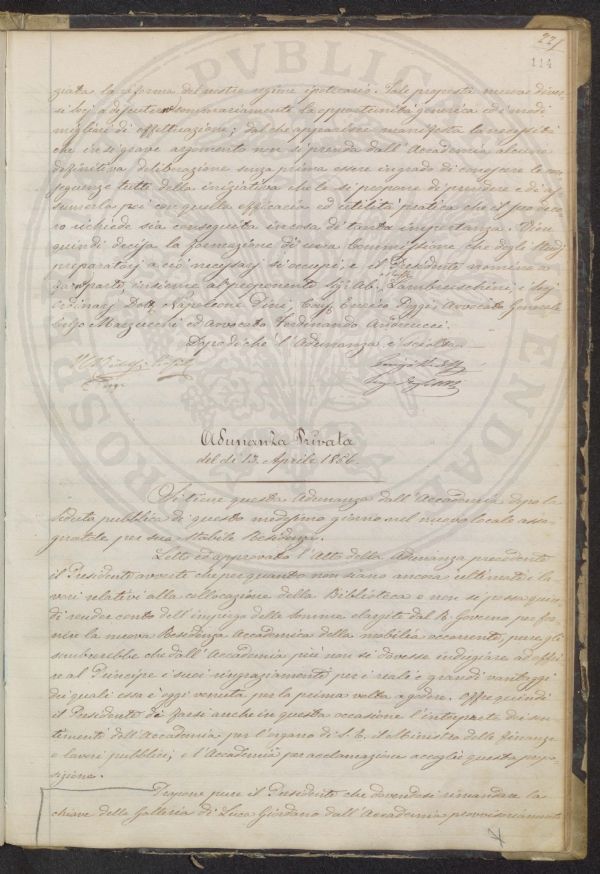 227
114
ziata la riforma del nostro regime ipotecario. Tale proposta muove diver-
si Socj a discuterne sommariamente la opportunità generica ed i modi
migliori di effettuazione; dal che apparisce manifesta la necessità
che in sì grave argomento non si prenda dall'Accademia alcuna
definitiva deliberazione senza prima essere in grado di conoscere le con-
seguenze tutte della iniziativa che le si propone di prendere e di as-
sumerla poi con quella efficacia ed utilità pratica che il
richiede sia conseguita in cosa di tanta importanza. Vien
quindi decisa la formazione di una Commissione che degli studj
preparatorj a ciò necessarj si occupi, e il Presidente nomina a
far parte, insieme al proponente Sig. Ab. Lambruschini, i Socj
Ordinarj Dott. Napoleone Pini, Cav. Enrico Poggi, Avvocato Generale
Marzucchi ed Avvocato Ferdinando Andreucci.
Dopo di che l'Adunanza è sciolta.
Adunanza Privata
del dì 13. Aprile 1856.
Si tiene questa Adunanza dall'Accademia dopo la
seduta pubblica di questo medesimo giorno nel nuovo locale asse-
gnatole per sua stabile Residenza.
Letto ed approvato l'Atto della Adunanza precedente
il Presidente avverte che per quanto non siano ancora ultimati i la-
vori relativi alla collocazione della Biblioteca e non si possa quin-
di render conto dell'impiego delle somme elargite dal R. Governo per for-
nire la nuova Residenza Accademica della mobilia occorrente, pure gli
sembrerebbe che dall'Accademia più non si dovesse indugiare ad offri-
re al Principe i suoi ringraziamenti per i reali e grandi vantaggi
dei quali essa è oggi venuta per la prima volta a godere. Offre quindi
il Presidente di farsi anche in questa occasione l'interprete dei sen-
timenti dell'Accademia per l'organo di S. E. il Ministro delle Finanze
e lavori pubblici; e l'Accademia per acclamazione accoglie questa propo-
sizione.
Propone pure il Presidente che dovendosi rimandare la
chiave della Galleria di Luca Giordano dall'Accademia provvisoriamente